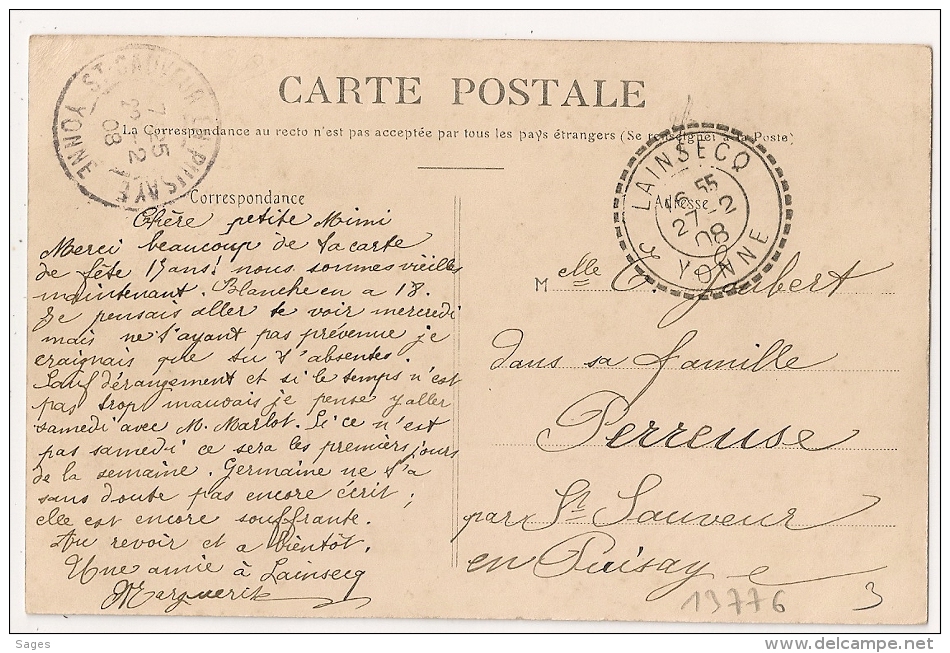 CARTE POSTALE
La Correspondance au recto n'est pas acceptée par tous les pays étrangers (Se renseigner à la Poste)
ST SAUVEUR EN PUISAYE
YONNE
7 15
-2
08
LAINSECQ
16 55
27-2
08
YONNE
Correspondance
Chère petite Mimi
Merci beaucoup de ta carte
de fête 19 ans! nous sommes vieilles
maintenant. Blanche en a 18.
Je pensais aller te voir mercredi
mais ne t'ayant pas prévenue je
craignais que tu t'absentes.
Sauf dérangement et si le temps n'est
pas trop mauvais je pense y aller
samedi avec M. Marlot. Si ce n'est
pas samedi ce sera les premièrs jours
de la semaine. Germaine ne t'a
sans doute pas encore écrit;
elle est encore souffrante.
Au revoir et a bientôt.
Une amie à Lainsecq
Marguerite
Adresse
Melle C. Joubert
dans sa famille
Perreuse
par St Sauveur
en Puisaye
13776
3
Sages
http://www.delcampe.net